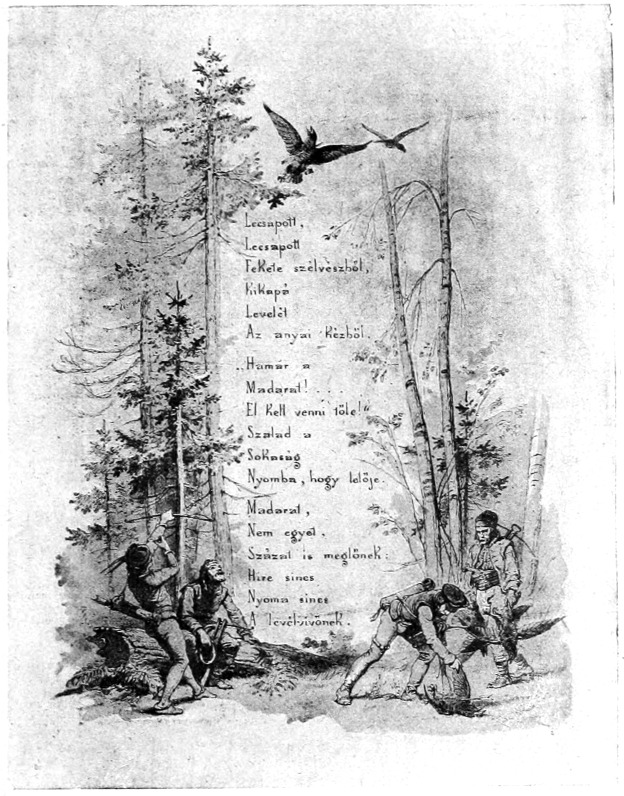 Lecsapott,
Lecsapott
Fekete szélvészből,
Kikapá
Levelét
Az anyai kézből.
„Hamár a
Madarat! . . .
El kell venni tőle!“
Szalad a
Sokaság
Nyomba, hogy lelője.
Madarat,
Nem egyet,
Százat is meglőnek:
Hire sincs
Nyoma sincs
A levélvivőnek.